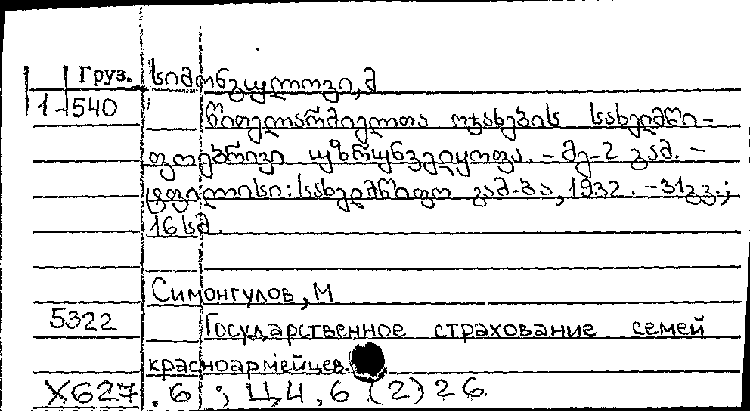 Груз. სიმონგულოვი, მ
1-540 წითელარმიელთა ოჯახების სახელმწი-
ფოებრივი უზრუნველყოფა. - მე-2 გამ. -
ტფილისი: სახელმწიფო გამ-ბა, 1932. - 31 გვ.;
16 სმ.
Симонгулов, М
5322 Государственное страхование семей
красноармейцев.
X627.6; Ц4,6(2)26